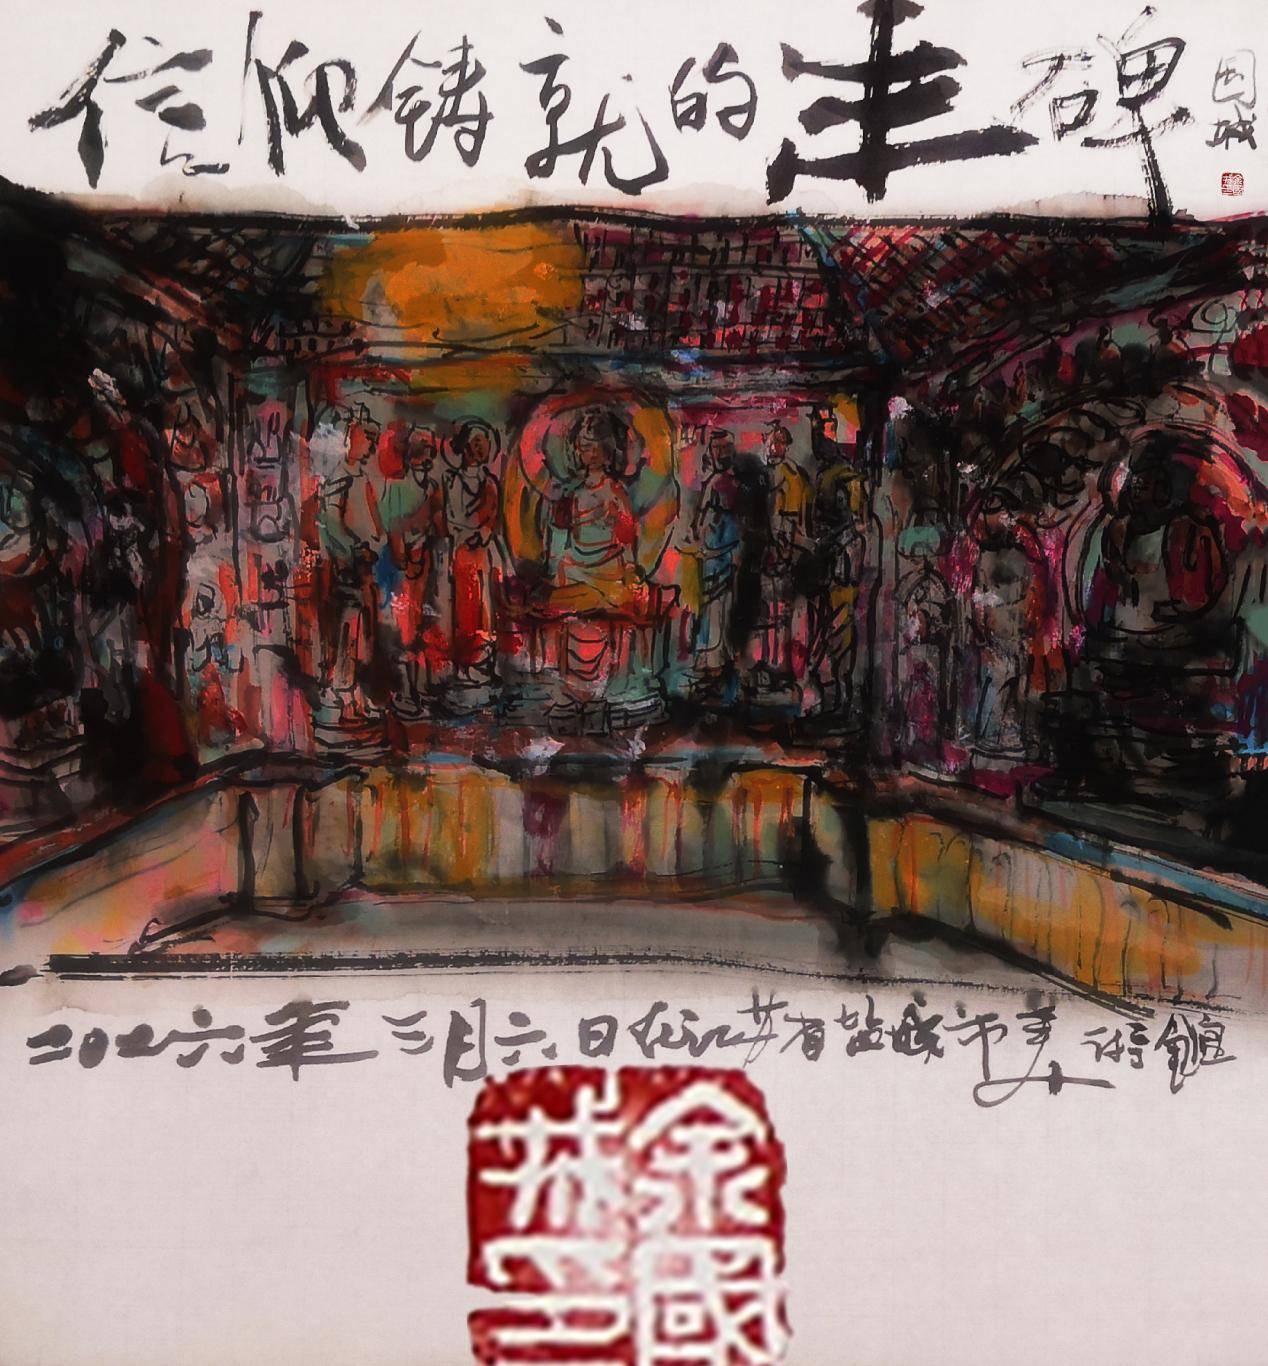 信仰铸就的丰碑
国城
二〇二六年三月六日在江苏省盐城市美